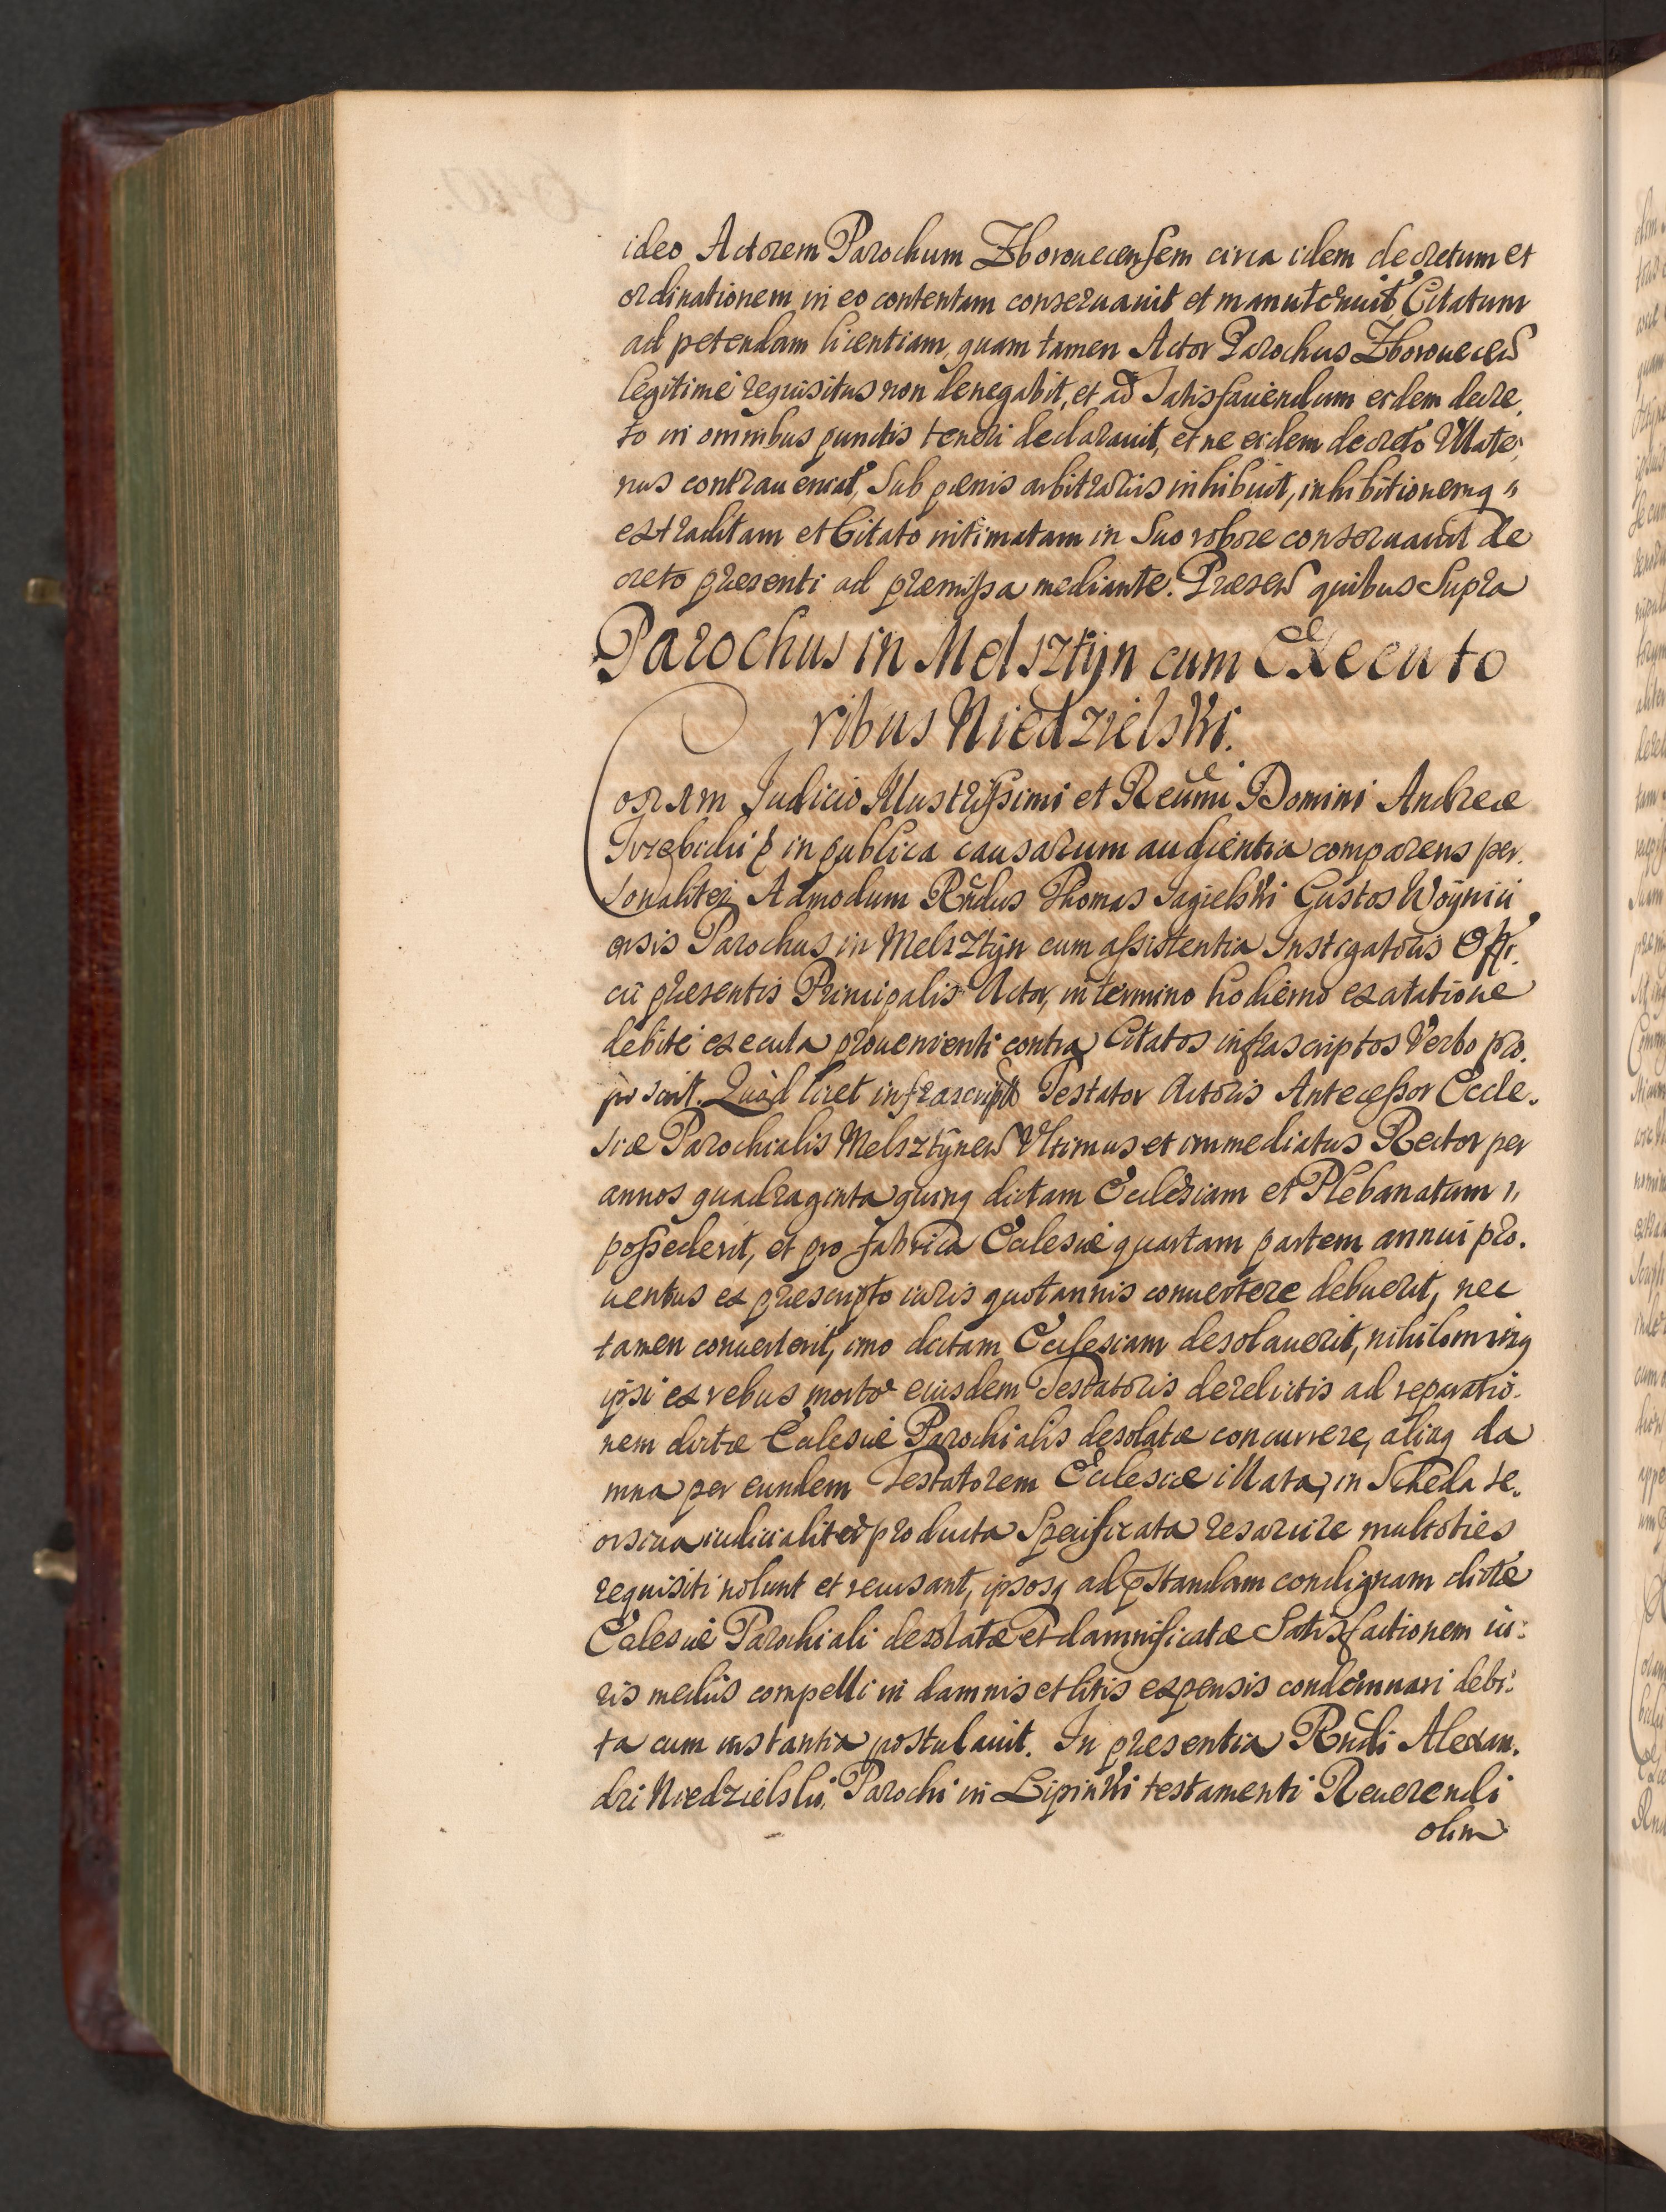 ideo Actorem Parochum Zborouecensem circa idem decretum et
ordinationem in eo contentam conseruauit et manutenuit, Citatum
ad petendam licentiam, quam tamen Actor Parochus Zborouecen
legitimè requisitus non denegabit, et ad Satisfaciendum eidem decre,
to in omnibus punctis teneri declarauit, et ne eidem decreto Vllate,
nus contraueniat, Sub pœnis arbitrariis inhibuit, inhibitionemq
extraditam et Citato intimatam in Suo robore conseruauit de
creto præsenti ad præmissa mediante. Præsen quibus Supra
Parochus in Melsztÿn cum Executo
ribus Niedzielski.
Coram Judicio Illustrissimi et Reumi Domini Andreæ
Trzebicki in publica causarum audientia comparens per.
sonaliter Admodum Rndus Thomas Jagielski Custos Woÿnici
ensis Parochus in Melsztÿn cum assistentia Instigatoris Offi.
cii præsentis Principalis Actor, in termino hodierno ex citatione
debitè executa proueniente contra Citatos infrascriptos Verbo pro.
posuit. Quòd licet infrascripti Testator Actoris Antecessor Eccle.
siæ Parochialis Melsztÿnen Vltimus et immediatus Rector per
annos quadraginta quinq dictam Ecclesiam et Plebanatum
possederit, et pro fabrica Ecclesiæ quartam partem annui pro.
uentus ex præscripto iuris quotannis conuertere debuerit, nec
tamen conuerterit, imo dictam Ecclesiam desolauerit, nihilominq
ipsi ex rebus morte eiusdem Testatoris derelictis ad reparatio.
nem dictæ Ecclesiæ Parochialis desolatæ concurrere, aliaq da
mna per eundem Testatorem Ecclesiæ illata, in Scheda se.
orsiua iudicialiter producta Specificata resarcire multoties
requisiti nolunt et recusant, ipsosq ad pstandam condignam dictæ
Ecclesiæ Parochiali desolatæ et damnificatæ Satisfactionem iu:
ris mediis compelli in damnis et litis expensis condemnari debi:
ta cum instantia postulauit. In præsentia Rndi Alexan.
dri Niedzielski, Parochi in Lipinki testamenti Reuerendi
olim